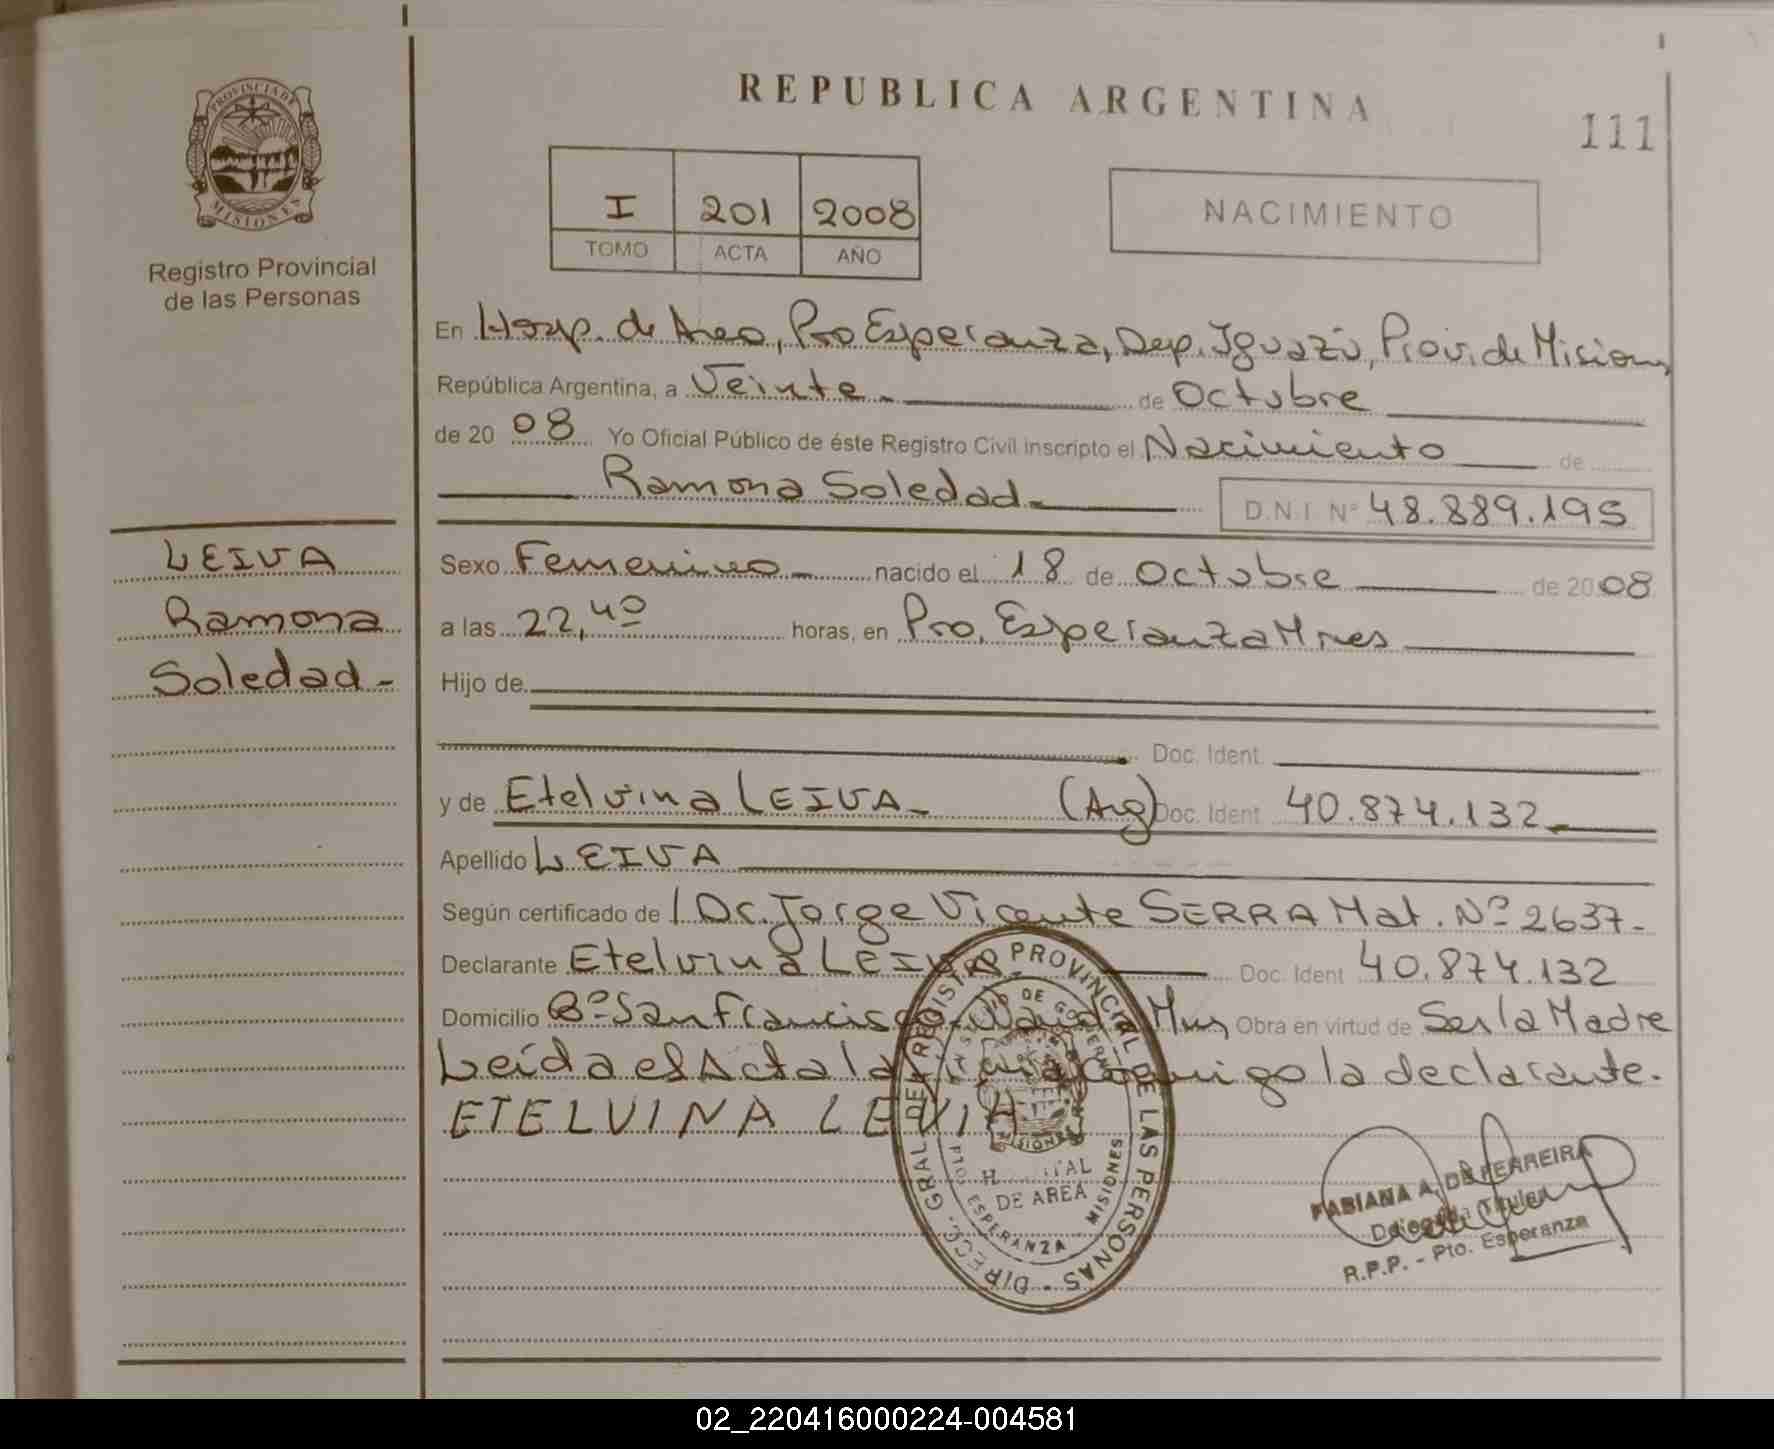 REPUBLICA ARGENTINA
111
PROVINCIA DE
MISIONES
Registro Provincial
de las Personas
I 201 2008
TOMO ACTA AÑO
NACIMIENTO
En Hosp. de Area, Pto Esperanza, Dep. Iguazú, Prov. de Misiones
República Argentina, a Veinte de Octubre
de 20 08 Yo Oficial Público de éste Registro Civil inscripto el Nacimiento de
Ramona Soledad
D.N.I. Nº 48.889.195
LEIVA
Ramona
Soledad-
Sexo Femenino nacido el 18 de Octubre de 2008
a las 22,40 horas, en Pto. Esperanza Mnes
Hijo de
Doc. Ident.
y de Etelvina LEIVA (Arg) Doc. Ident 40.874.132
Apellido LEIVA
Según certificado de Dr. Jorge Vicente SERRA Mat. Nº 2637-
Declarante Etelvina LEIVA Doc. Ident 40.874.132
Domicilio Bº San Francisco Mnes Obra en virtud de Ser la Madre
Leída el Acta la conmigo la declarante.
ETELVINA LEVIA
DIRECC. GRAL. DEL REGISTRO PROVINCIAL DE LAS PERSONAS
DE GOBIERNO
MISIONES
DE AREA
PTO. ESPERANZA - MISIONES
FABIANA A. DE FERREIRA
Delegada Titular
R.P.P. - Pto. Esperanza
02_220416000224-004581